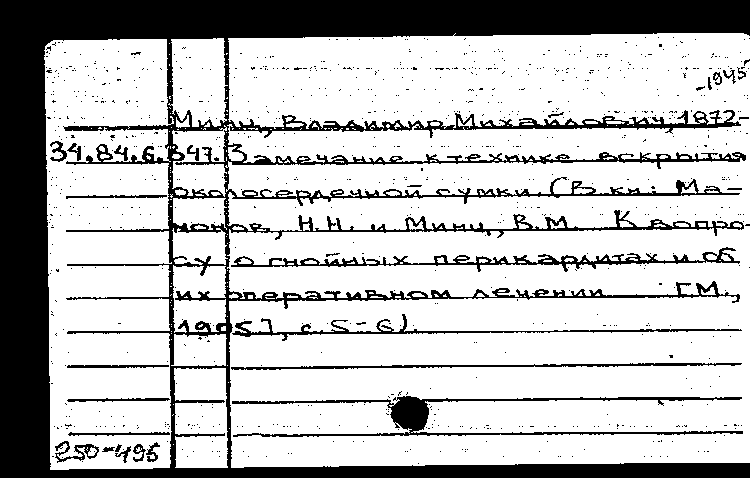 -1945
Минц, Владимир Михайлович, 1872-
34.84.6.347. Замечание к технике вскрытия
околосердечной сумки. (В кн: Ма-
монов, Н.Н. и Минц, В.М. К вопро-
су о гнойных перикардитах и об
их оперативном лечении [М.,
1905], с. 5-6).
250-496